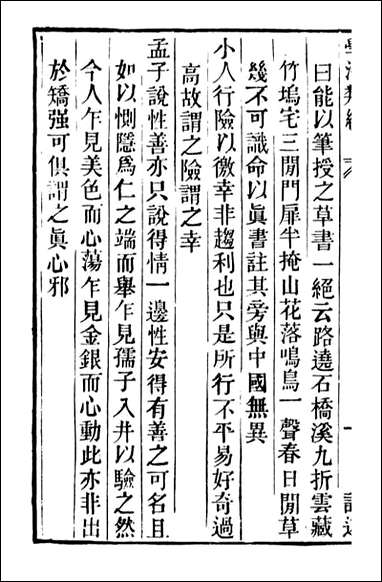 曰能以筆授之草書一絕云路遶石橋溪九折雲藏
竹塢宅三閒門扉半掩山花落鳴鳥一聲春日閒草
幾不可識命以眞書註其旁與中國無異
小人行險以徼幸非趨利也只是所行不平易好奇過
高故謂之險謂之幸
孟子說性善亦只說得情一邊性安得有善之可名且
如以惻隱爲仁之端而舉乍見孺子入井以驗之然
今人乍見美色而心蕩乍見金銀而心動此亦非出
於矯强可俱謂之眞心邪